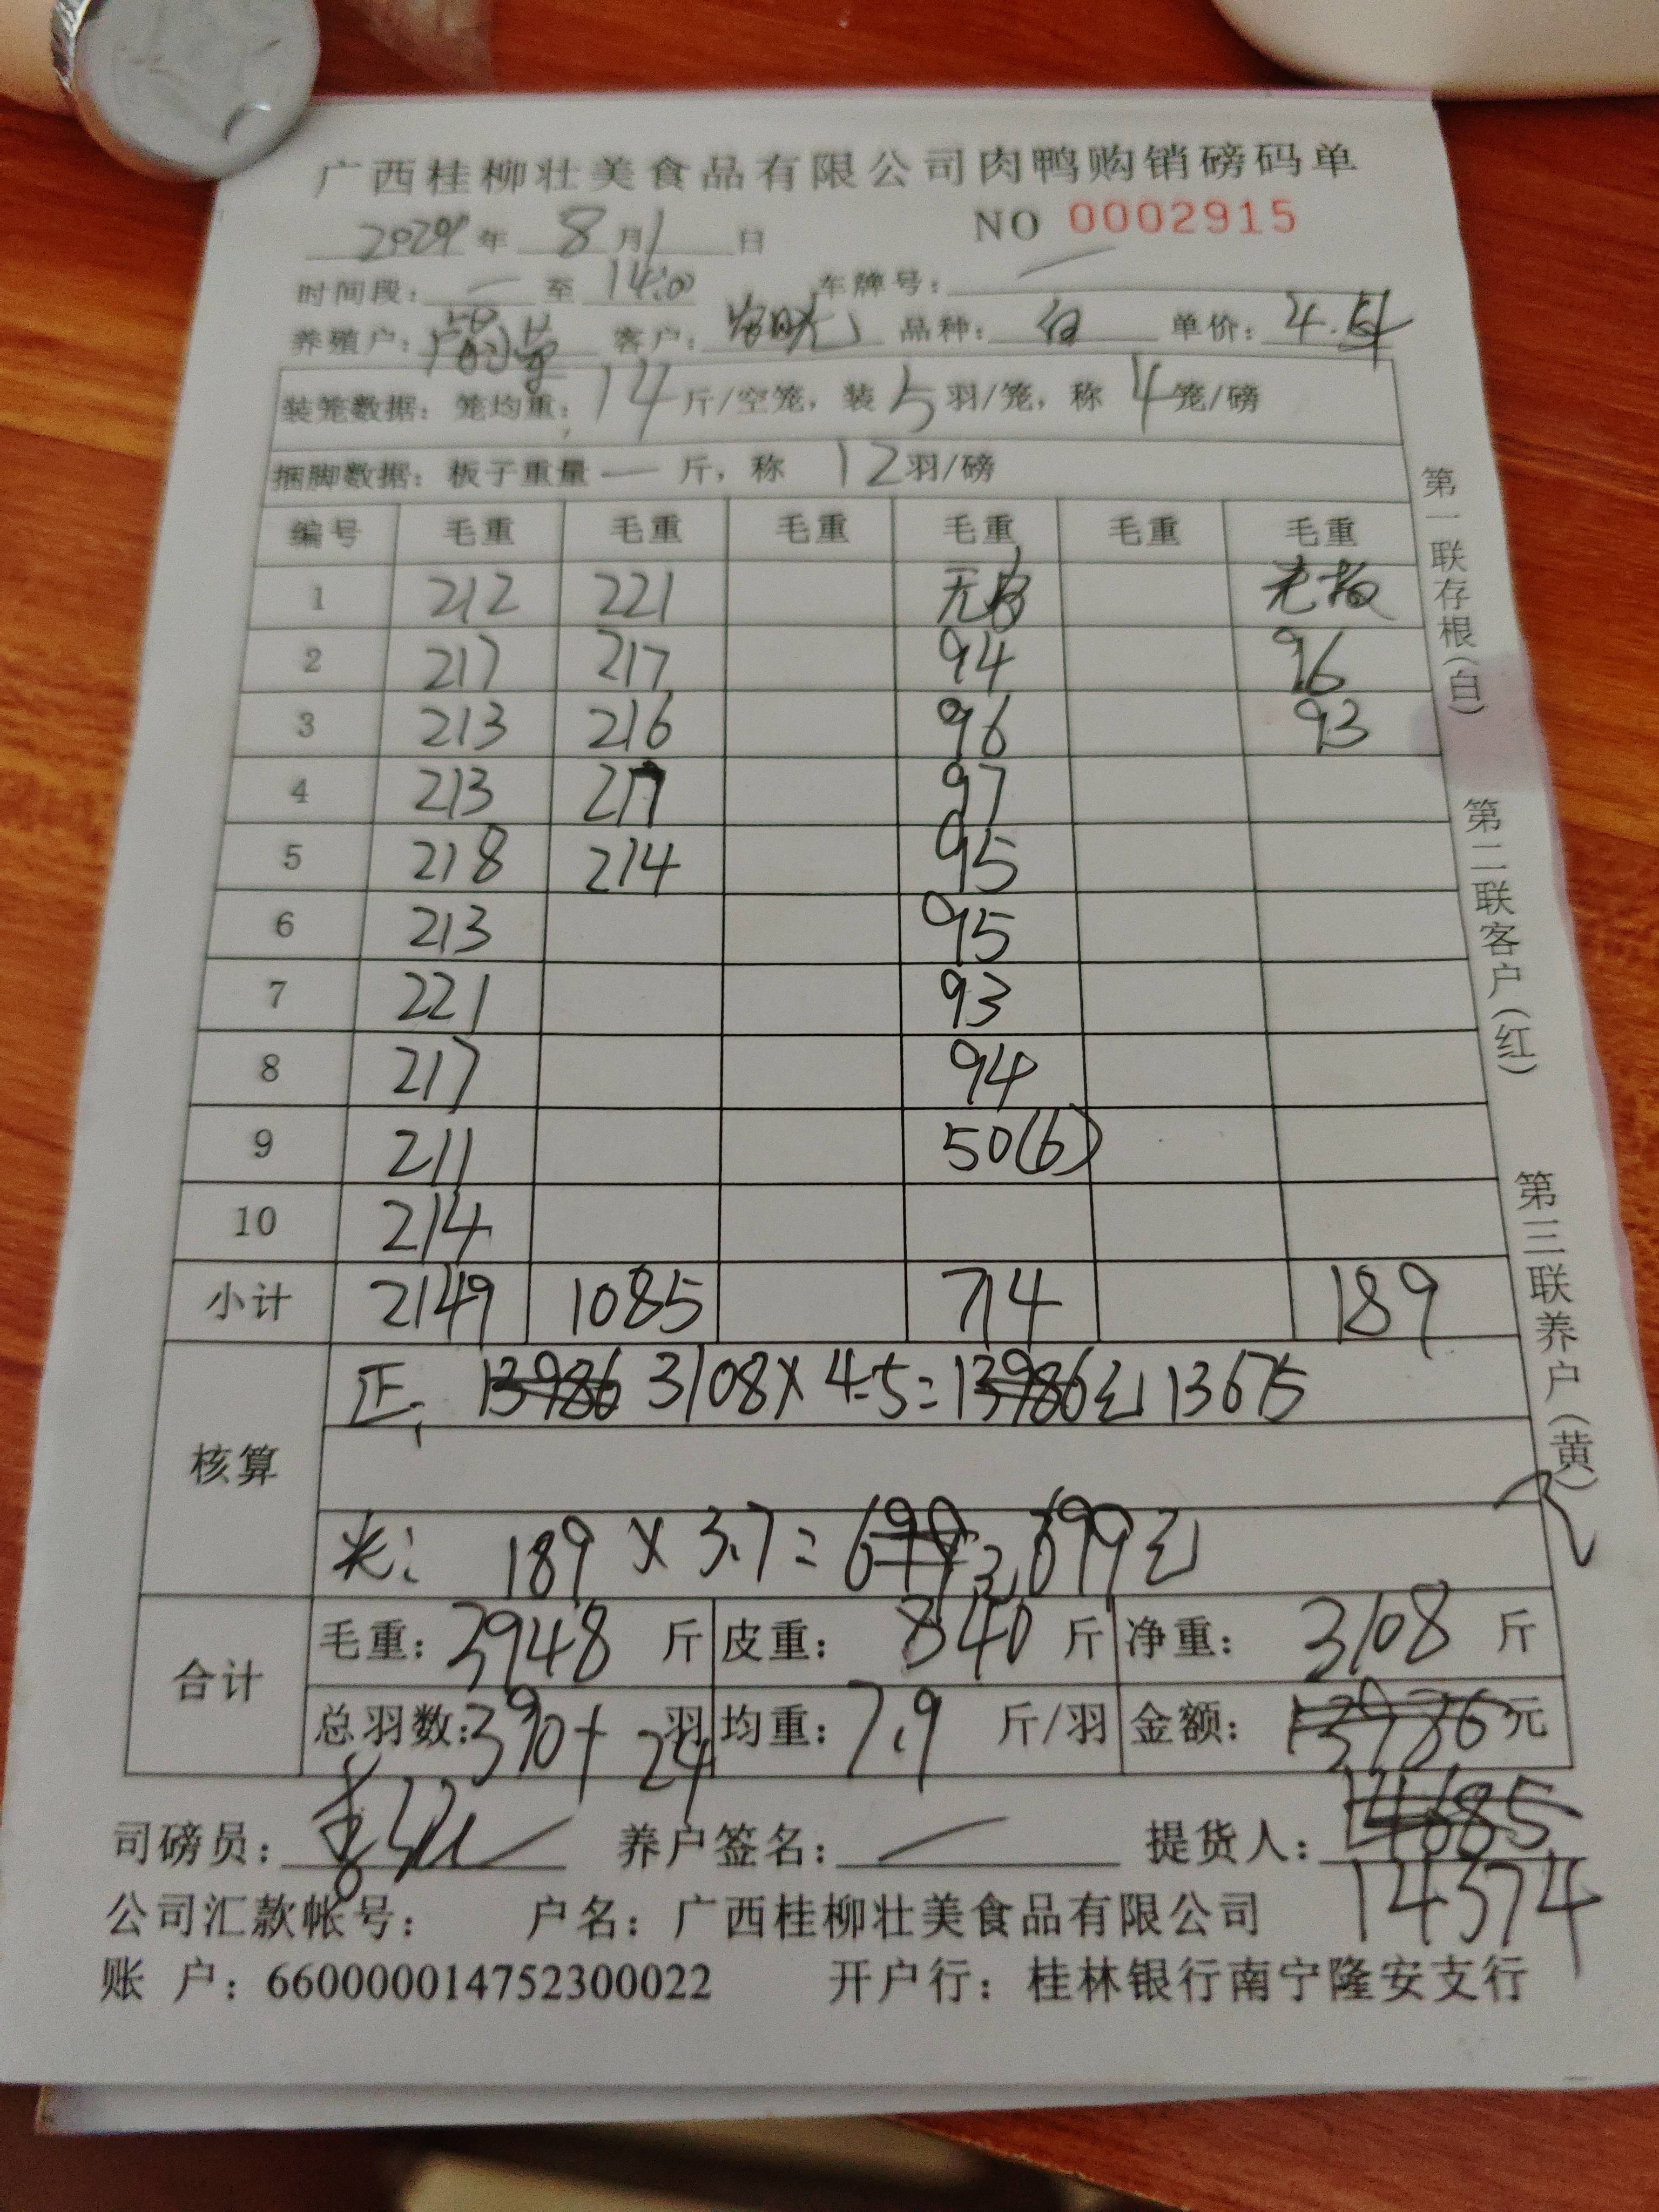 广西桂柳壮美食品有限公司肉鸭购销磅码单
2024年 8月1日 NO 0002915
时间段：一 至 14:00 车牌号：一
养殖户： 客户： 品种：白 单价：4.
装笼数据：笼均重：14斤/空笼，装5羽/笼，称4笼/磅
捆脚数据：板子重量一斤，称12羽/磅
编号 毛重 毛重 毛重 毛重 毛重 毛重
1 212 221 无皮
2 217 217 94 96
3 213 216 96 93
4 213 217 97
5 218 214 95
6 213 95
7 221 93
8 217 94
9 211 50(6)
10 214
小计 2149 1085 714 189
核算
正: 13986 3108×4.5=13986元 13675
189×3.7=699元
合计
毛重：3948斤 皮重：840斤 净重：3108斤
总羽数：390+24羽 均重：7.9斤/羽 金额：13986元
14685
司磅员： 养户签名：一 提货人：
14374
公司汇款帐号： 户名：广西桂柳壮美食品有限公司
账 户：660000014752300022 开户行：桂林银行南宁隆安支行
第一联存根(白) 第二联客户(红) 第三联养户(黄)